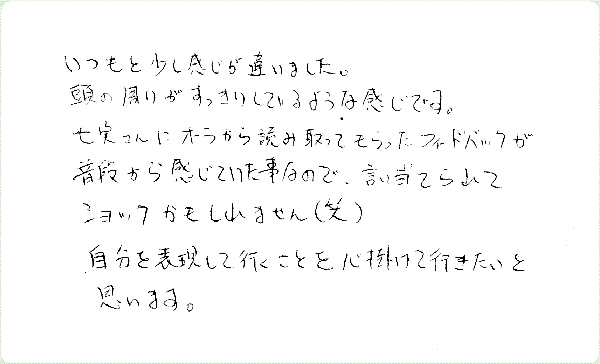 いつもと少し感じが違いました。
頭の周りがすっきりしているような感じです。
七実さんにオーラから読み取ってもらったフィードバックが
普段から感じていた事なので、言い当てられて
ショックかもしれません(笑)
自分を表現して行くことを心掛けて行きたいと
思います。